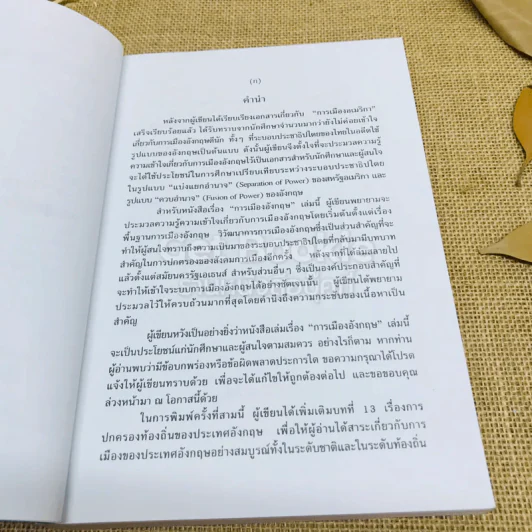 (ก)
คำนำ
หลังจากผู้เขียนได้เรียบเรียงเอกสารเกี่ยวกับ "การเมืองอเมริกา"
เสร็จเรียบร้อยแล้ว ได้รับทราบจากนักศึกษาจำนวนมากว่ายังไม่ค่อยเข้าใจ
เกี่ยวกับการเมืองอังกฤษดีนัก ทั้งๆ ที่ระบอบประชาธิปไตยของไทยในอดีตใช้
รูปแบบของอังกฤษเป็นต้นแบบ ดังนั้นผู้เขียนจึงตั้งใจที่จะประมวลความรู้
ความเข้าใจเกี่ยวกับการเมืองอังกฤษไว้เป็นเอกสารสำหรับนักศึกษาและผู้สนใจ
จะได้ใช้ประโยชน์ในการศึกษาเปรียบเทียบระหว่างระบอบประชาธิปไตย
ในรูปแบบ "แบ่งแยกอำนาจ" (Separation of Power) ของสหรัฐอเมริกา และ
รูปแบบ "ควบอำนาจ" (Fusion of Power) ของอังกฤษ
สำหรับหนังสือเรื่อง "การเมืองอังกฤษ" เล่มนี้ ผู้เขียนพยายามจะ
ประมวลความรู้ความเข้าใจเกี่ยวกับการเมืองอังกฤษโดยเริ่มต้นตั้งแต่เรื่อง
พื้นฐานการเมืองอังกฤษ วิวัฒนาการการเมืองอังกฤษซึ่งเป็นส่วนสำคัญที่จะ
ทำให้ผู้สนใจทราบถึงความเป็นมาของระบอบประชาธิปไตยที่กลับมามีบทบาท
สำคัญในการปกครองของสังคมการเมืองอีกครั้ง หลังจากที่ได้ล่มสลายไป
แล้วตั้งแต่สมัยนครรัฐเอเธนส์ สำหรับส่วนอื่นๆ ซึ่งเป็นองค์ประกอบสำคัญที่
จะทำให้เข้าใจระบบการเมืองอังกฤษได้อย่างชัดเจนนั้น ผู้เขียนได้พยายาม
ประมวลไว้ให้ครบถ้วนมากที่สุดโดยคำนึงถึงความกระชับของเนื้อหาเป็น
สำคัญ
ผู้เขียนหวังเป็นอย่างยิ่งว่าหนังสือเล่มเรื่อง "การเมืองอังกฤษ" เล่มนี้
จะเป็นประโยชน์แก่นักศึกษาและผู้สนใจตามสมควร อย่างไรก็ตาม หากท่าน
ผู้อ่านพบว่ามีข้อบกพร่องหรือข้อผิดพลาดประการใด ขอความกรุณาได้โปรด
แจ้งให้ผู้เขียนทราบด้วย เพื่อจะได้แก้ไขให้ถูกต้องต่อไป และขอขอบคุณ
ล่วงหน้ามา ณ โอกาสนี้ด้วย
ในการพิมพ์ครั้งที่สามนี้ ผู้เขียนได้เพิ่มเติมบทที่ 13 เรื่องการ
ปกครองท้องถิ่นของประเทศอังกฤษ เพื่อให้ผู้อ่านได้สาระเกี่ยวกับการ
เมืองของประเทศอังกฤษอย่างสมบูรณ์ทั้งในระดับชาติและในระดับท้องถิ่น